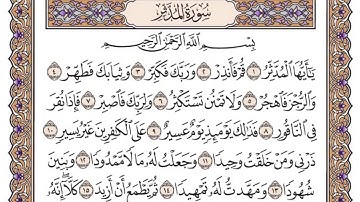 سُورَةُ المُدَّثِّرِ
بِسْمِ اللَّهِ الرَّحْمَٰنِ الرَّحِيمِ
يَٰٓأَيُّهَا ٱلْمُدَّثِّرُ ١ قُمْ فَأَنذِرْ ٢ وَرَبَّكَ فَكَبِّرْ ٣ وَثِيَابَكَ فَطَهِّرْ ٤
وَٱلرُّجْزَ فَٱهْجُرْ ٥ وَلَا تَمْنُن تَسْتَكْثِرُ ٦ وَلِرَبِّكَ فَٱصْبِرْ ٧ فَإِذَا نُقِرَ
فِي ٱلنَّاقُورِ ٨ فَذَٰلِكَ يَوْمَئِذٍ يَوْمٌ عَسِيرٌ ٩ عَلَى ٱلْكَٰفِرِينَ غَيْرُ يَسِيرٍ ١٠
ذَرْنِي وَمَنْ خَلَقْتُ وَحِيدًا ١١ وَجَعَلْتُ لَهُۥ مَالًا مَّمْدُودًا ١٢ وَبَنِينَ
شُهُودًا ١٣ وَمَهَّدتُّ لَهُۥ تَمْهِيدًا ١٤ ثُمَّ يَطْمَعُ أَنْ أَزِيدَ ١٥ كَلَّآ إِنَّهُۥ